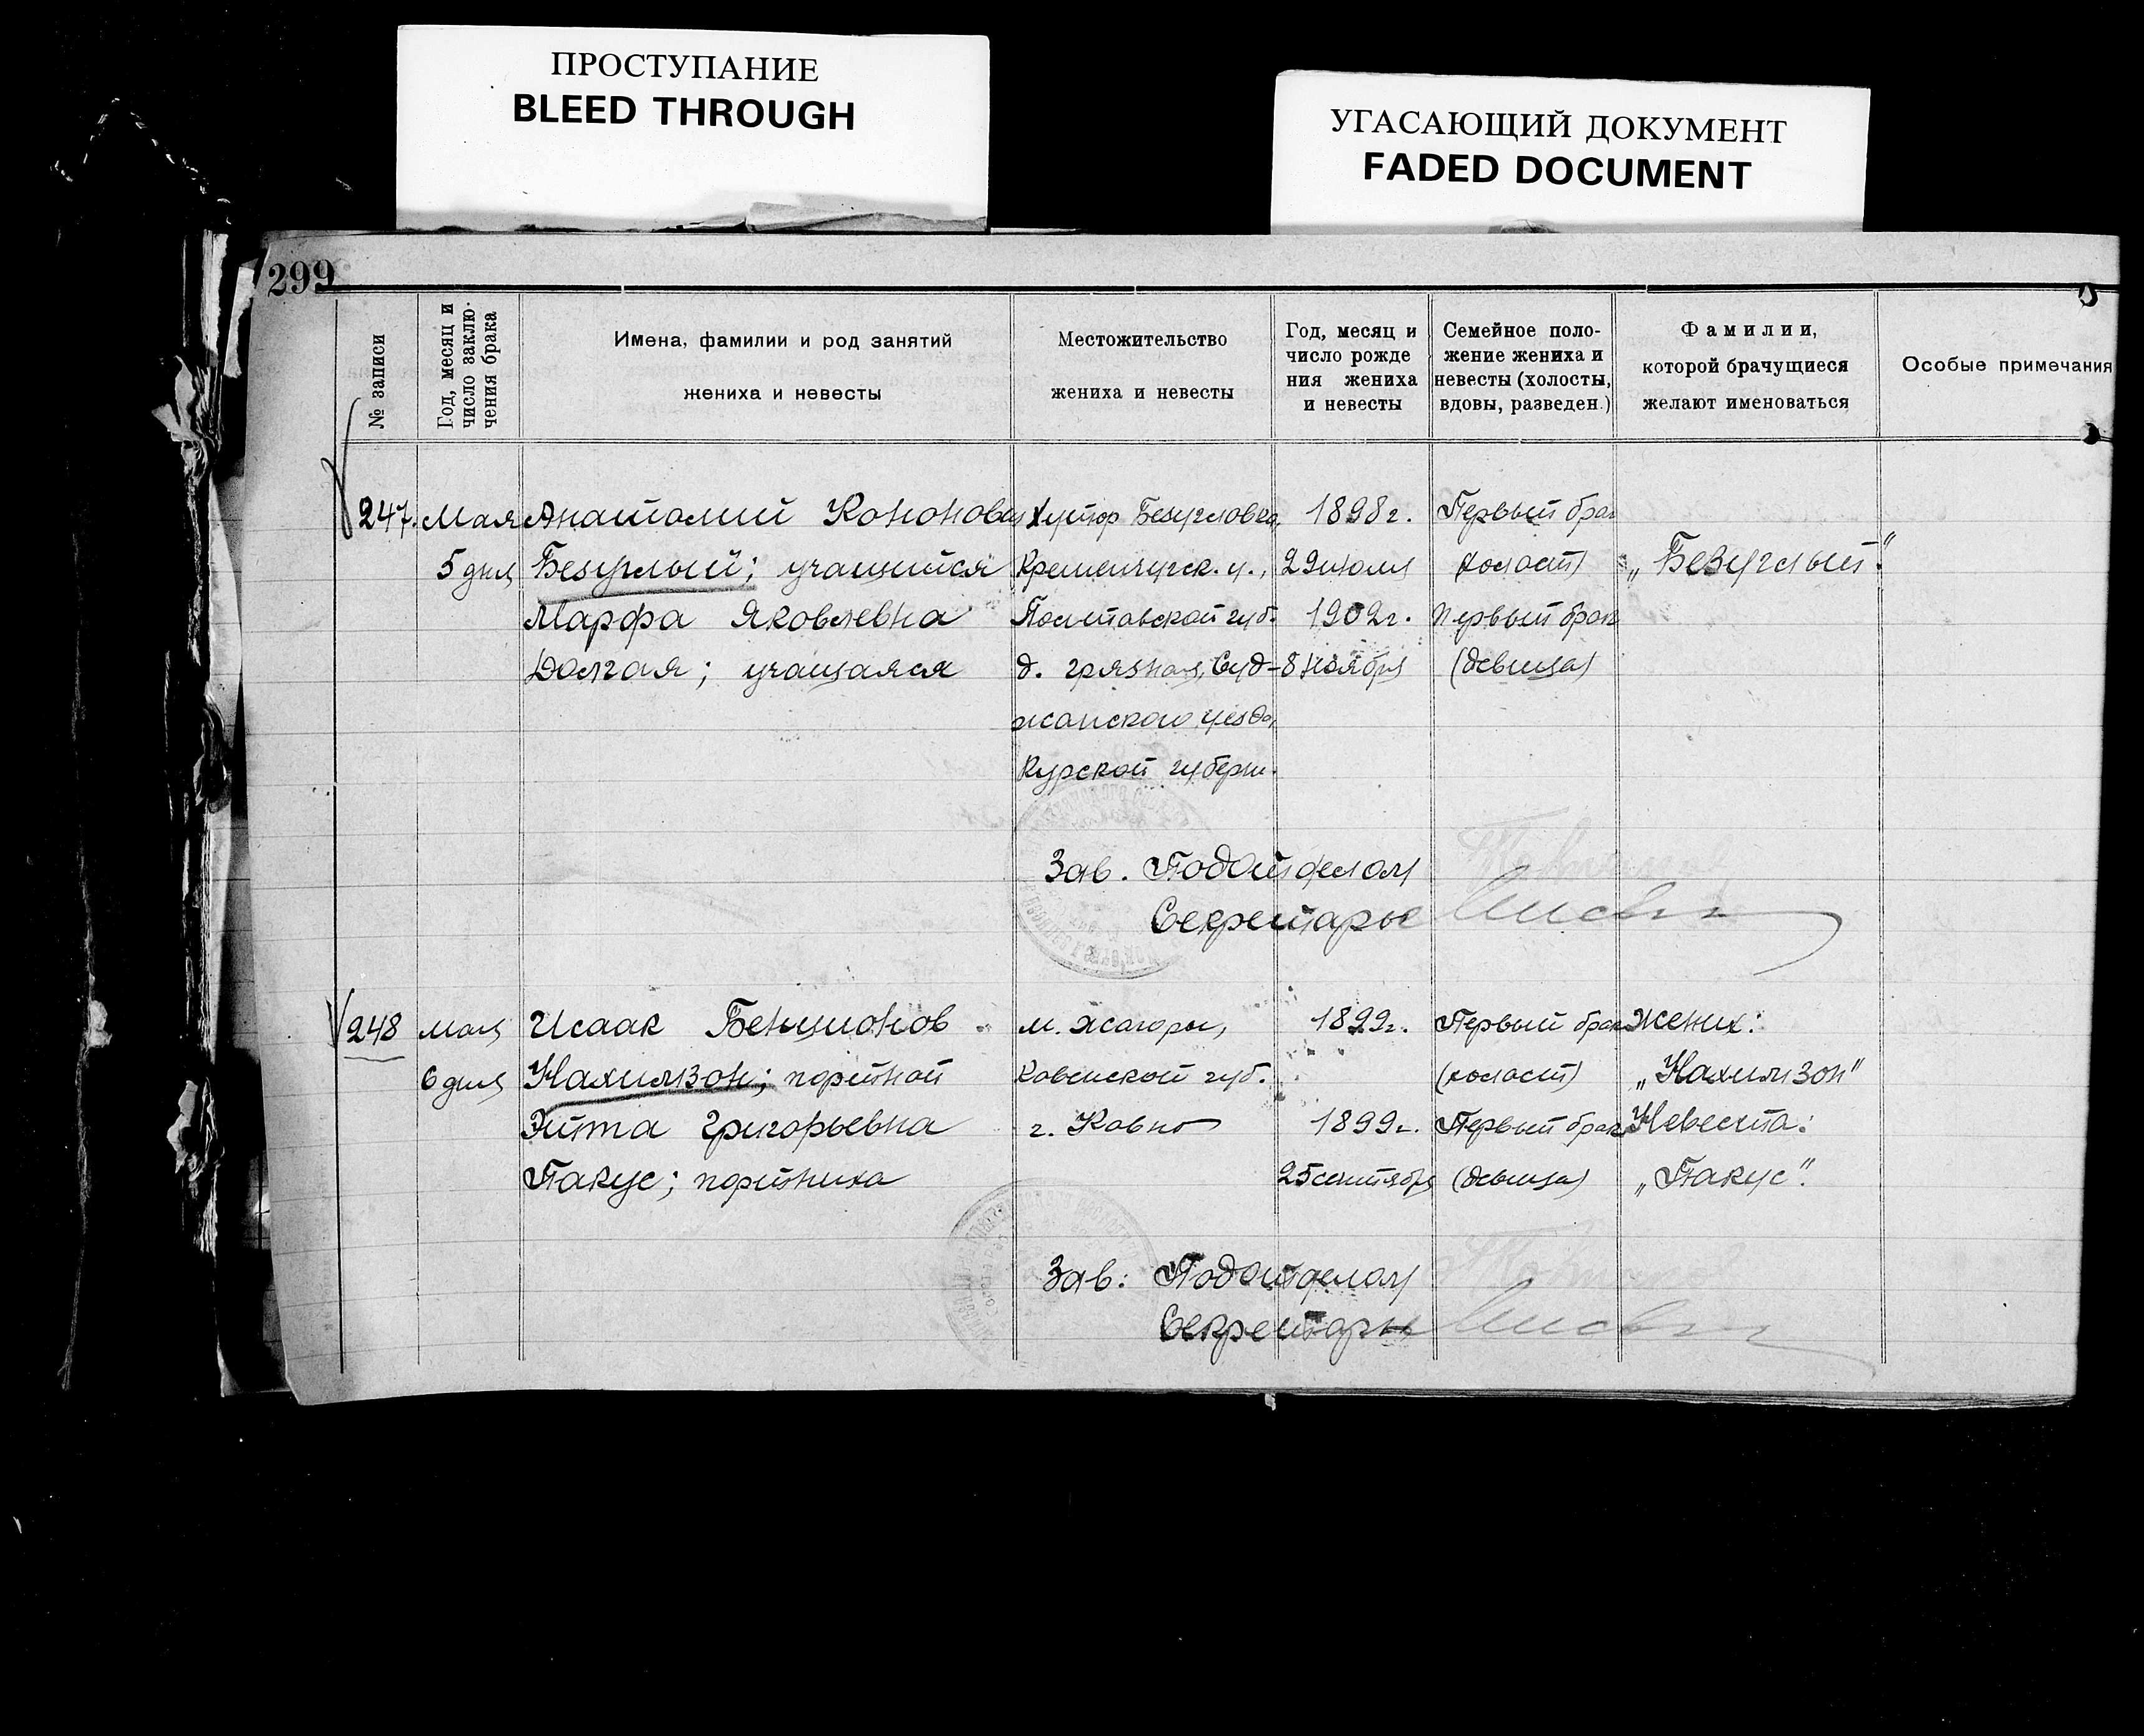 ПРОСТУПАНИЕ
BLEED THROUGH
УГАСАЮЩИЙ ДОКУМЕНТ
FADED DOCUMENT
299
№ записи
Год, месяц и
число заклю-
чения брака
Имена, фамилии и род занятий
жениха и невесты
Местожительство
жениха и невесты
Год, месяц и
число рожде
ния жениха
и невесты
Семейное поло-
жение жениха и
невесты (холосты,
вдовы, разведен.)
Фамилии,
которой брачущиеся
желают именоваться
Особые примечания
247.
Мая
5 дня
Анатолий Кононович
Безуглый; учащийся
Марфа Яковлевна
Долгая; учащаяся
Хутор Безугловка,
Кременчугск. у.,
Полтавской губ.
д. Грязная, Суд-
жанского уезда,
Курской губерн.
1898 г.
29 июля
1902 г.
8 ноября
Первый брак
(холост)
Первый брак
(девица)
„Безуглый".
Зав. Подотделом
Секретарь
248
мая
6 дня
Исаак Бенционов
Нахимзон; портной
Эйта Григорьевна
Пакус; портниха
м. Жагоры,
Ковенской губ.
г. Ковно
1899 г.
1899 г.
25 сентября
Первый брак
(холост)
Первый брак
(девица)
Жених:
„Нахимзон"
Невеста:
„Пакус".
Зав: Подотделом
Секретарь